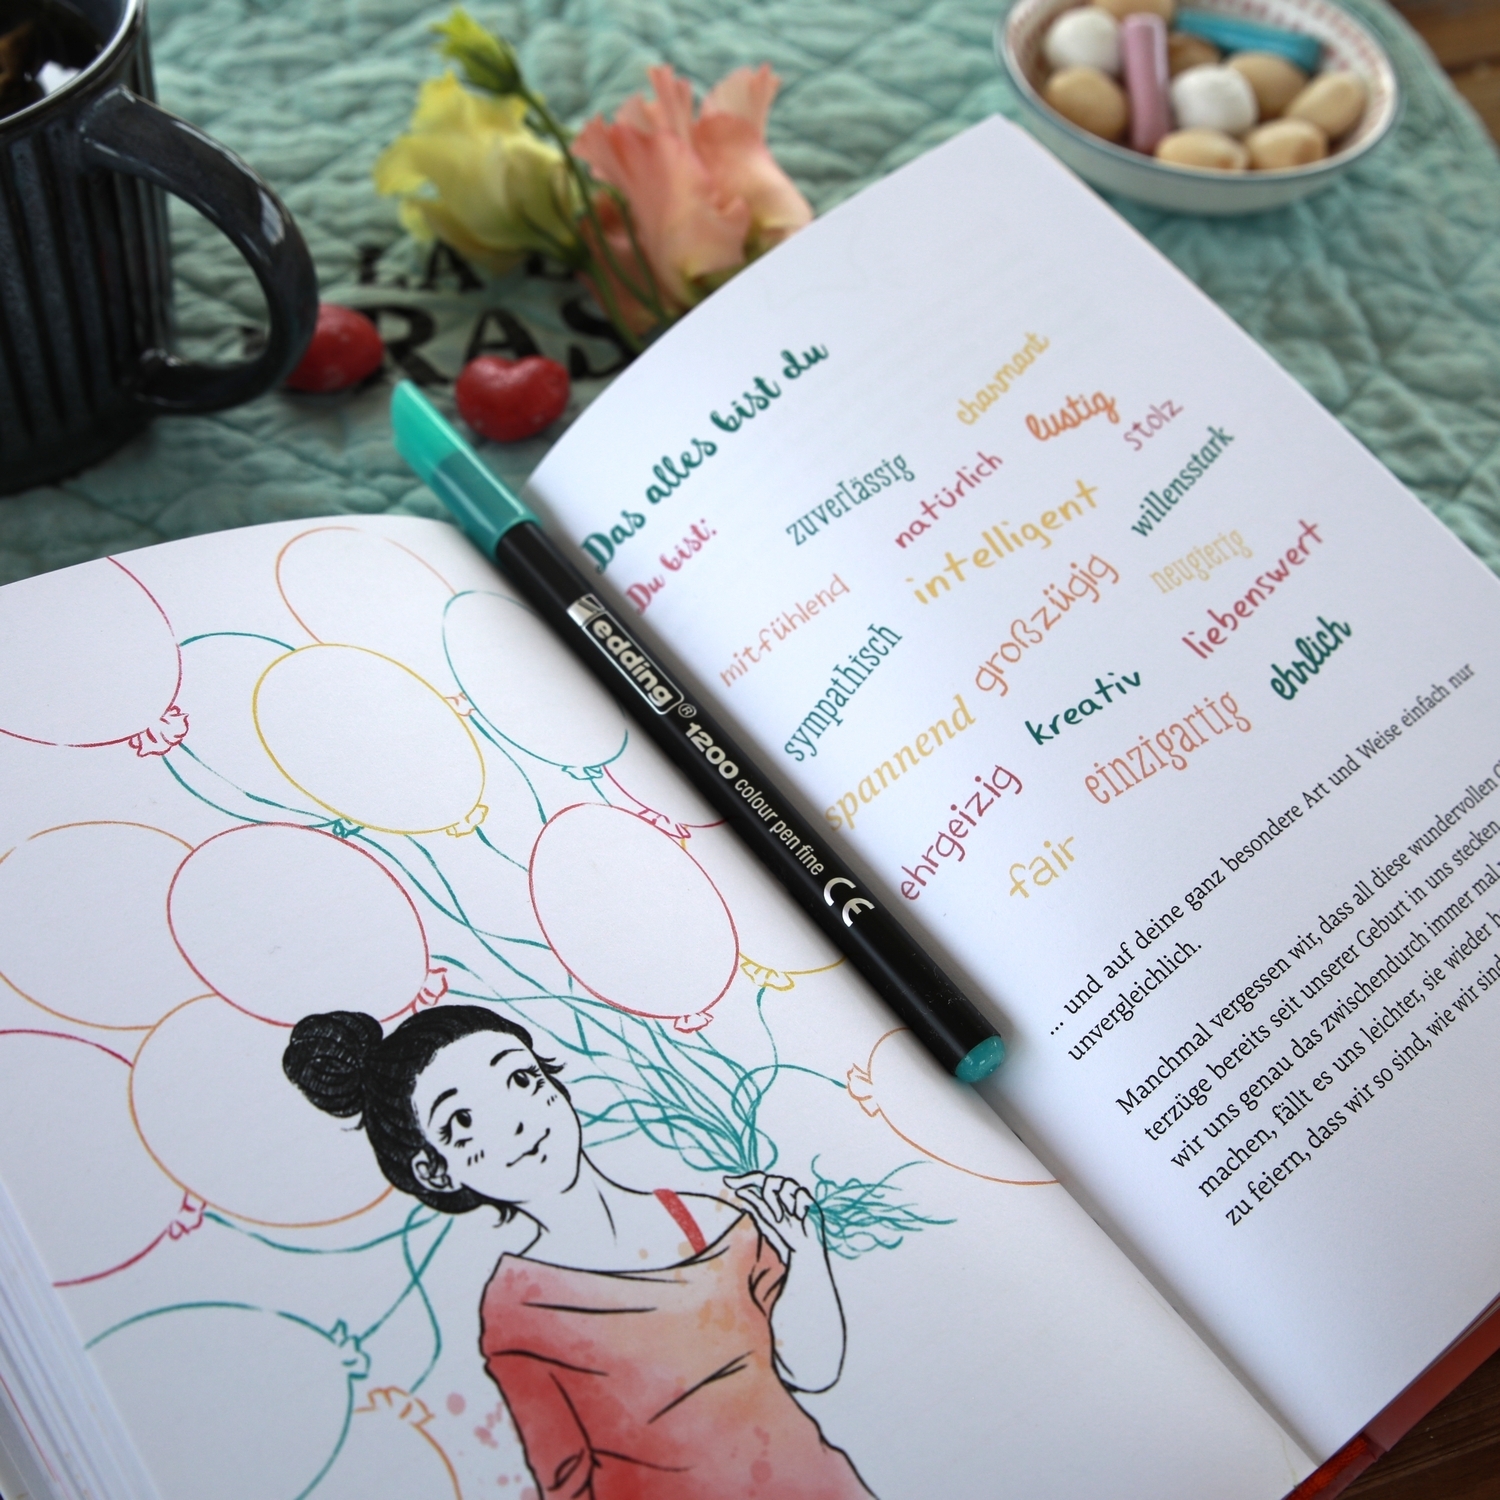 RAS
Das alles bist du
Du bist:
charmant
lustig
stolz
zuverlässig
natürlich
willensstark
mitfühlend
intelligent
neugierig
sympathisch
großzügig
liebenswert
spannend
kreativ
ehrlich
ehrgeizig
einzigartig
fair
... und auf deine ganz besondere Art und Weise einfach nur
unvergleichlich.
Manchmal vergessen wir, dass all diese wundervollen
terzüge bereits seit unserer Geburt in uns stecken
wir uns genau das zwischendurch immer mal
machen, fällt es uns leichter, sie wieder
zu feiern, dass wir so sind, wie wir sind
edding® 1200 colour pen fine CE